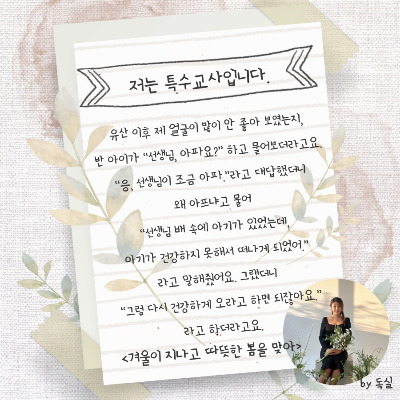 저는 특수교사입니다.
유산 이후 제 얼굴이 많이 안 좋아 보였는지,
반 아이가 "선생님, 아파요?" 하고 물어보더라고요.
"응, 선생님이 조금 아파."라고 대답했더니
왜 아프냐고 물어
"선생님 배 속에 아기가 있었는데,
아기가 건강하지 못해서 떠나게 되었어."
라고 말해줬어요. 그랬더니
"그럼 다시 건강하게 오라고 하면 되잖아요."
라고 하더라고요.
<겨울이 지나고 따뜻한 봄을 맞아>
by 독실